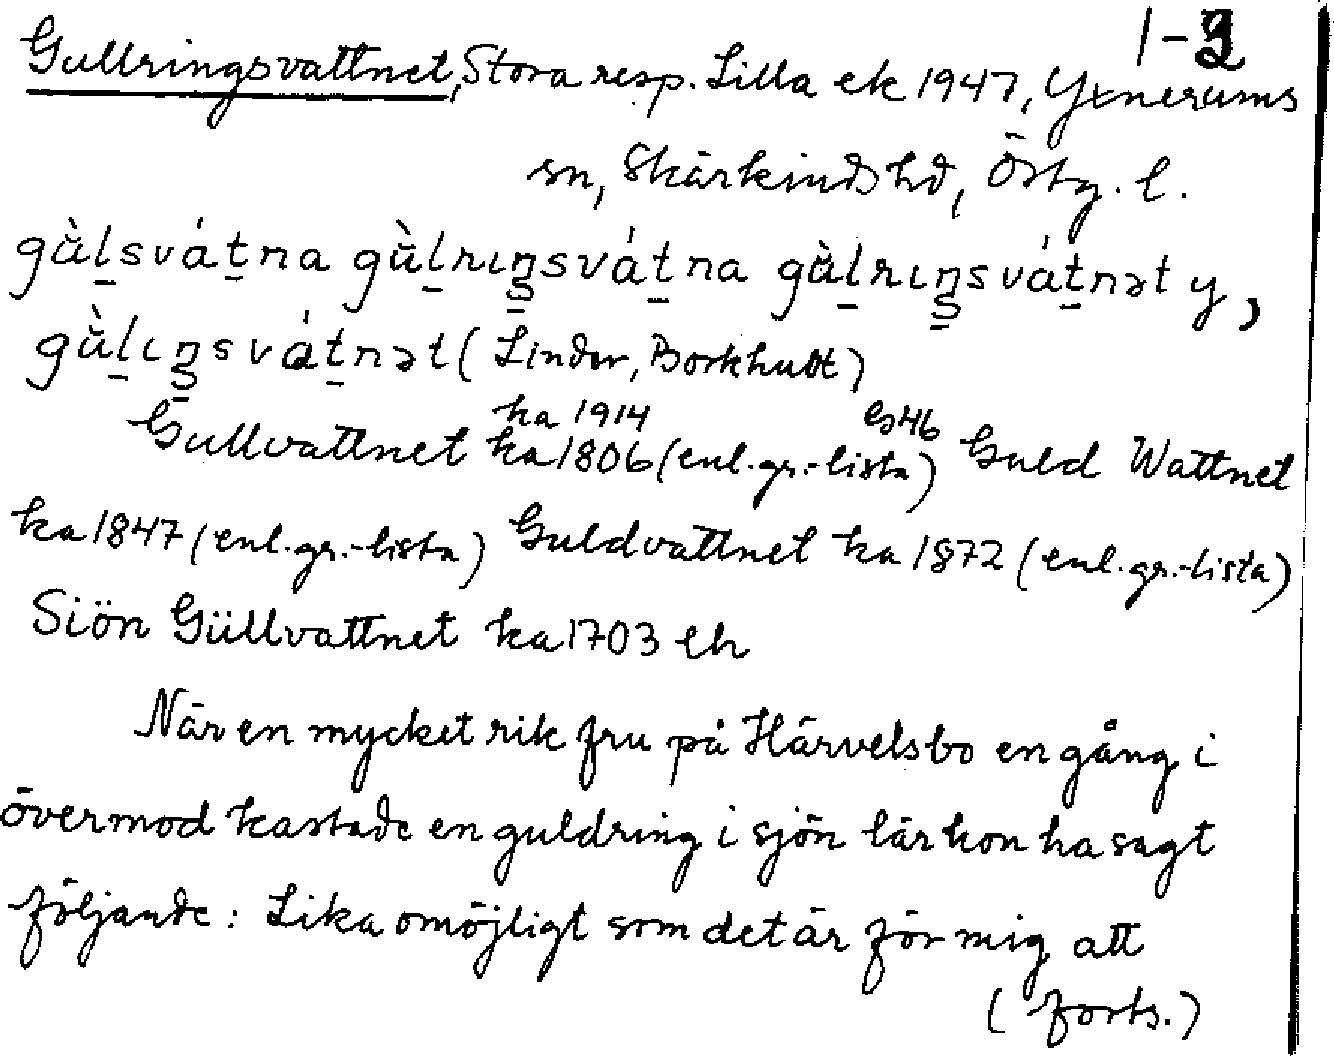 1-3
Gullringsvattnet, Stora resp. Lilla ek 1947, Yxnerums
sn, Skärkinds hd, Östg. l.
gù̆ḻsvát̠na gù̆ḻrıŋsvát̠na gù̆ḻrıŋsvát̠nət y,
gù̆ḻıŋsvát̠nət (Linder, Borkhult)
ha 1914 es46
Gullvattnet ka 1806 (enl. gr.-lista) Guld Wattnet
ka 1847 (enl. gr.-lista) Guldvattnet ka 1872 (enl. gr.-lista)
Siön Güllvattnet ka 1703 eh
När en mycket rik fru på Härvelsbo en gång i
övermod kastade en guldring i sjön lär hon ha sagt
följande: Lika omöjligt som det är för mig att
(forts.)